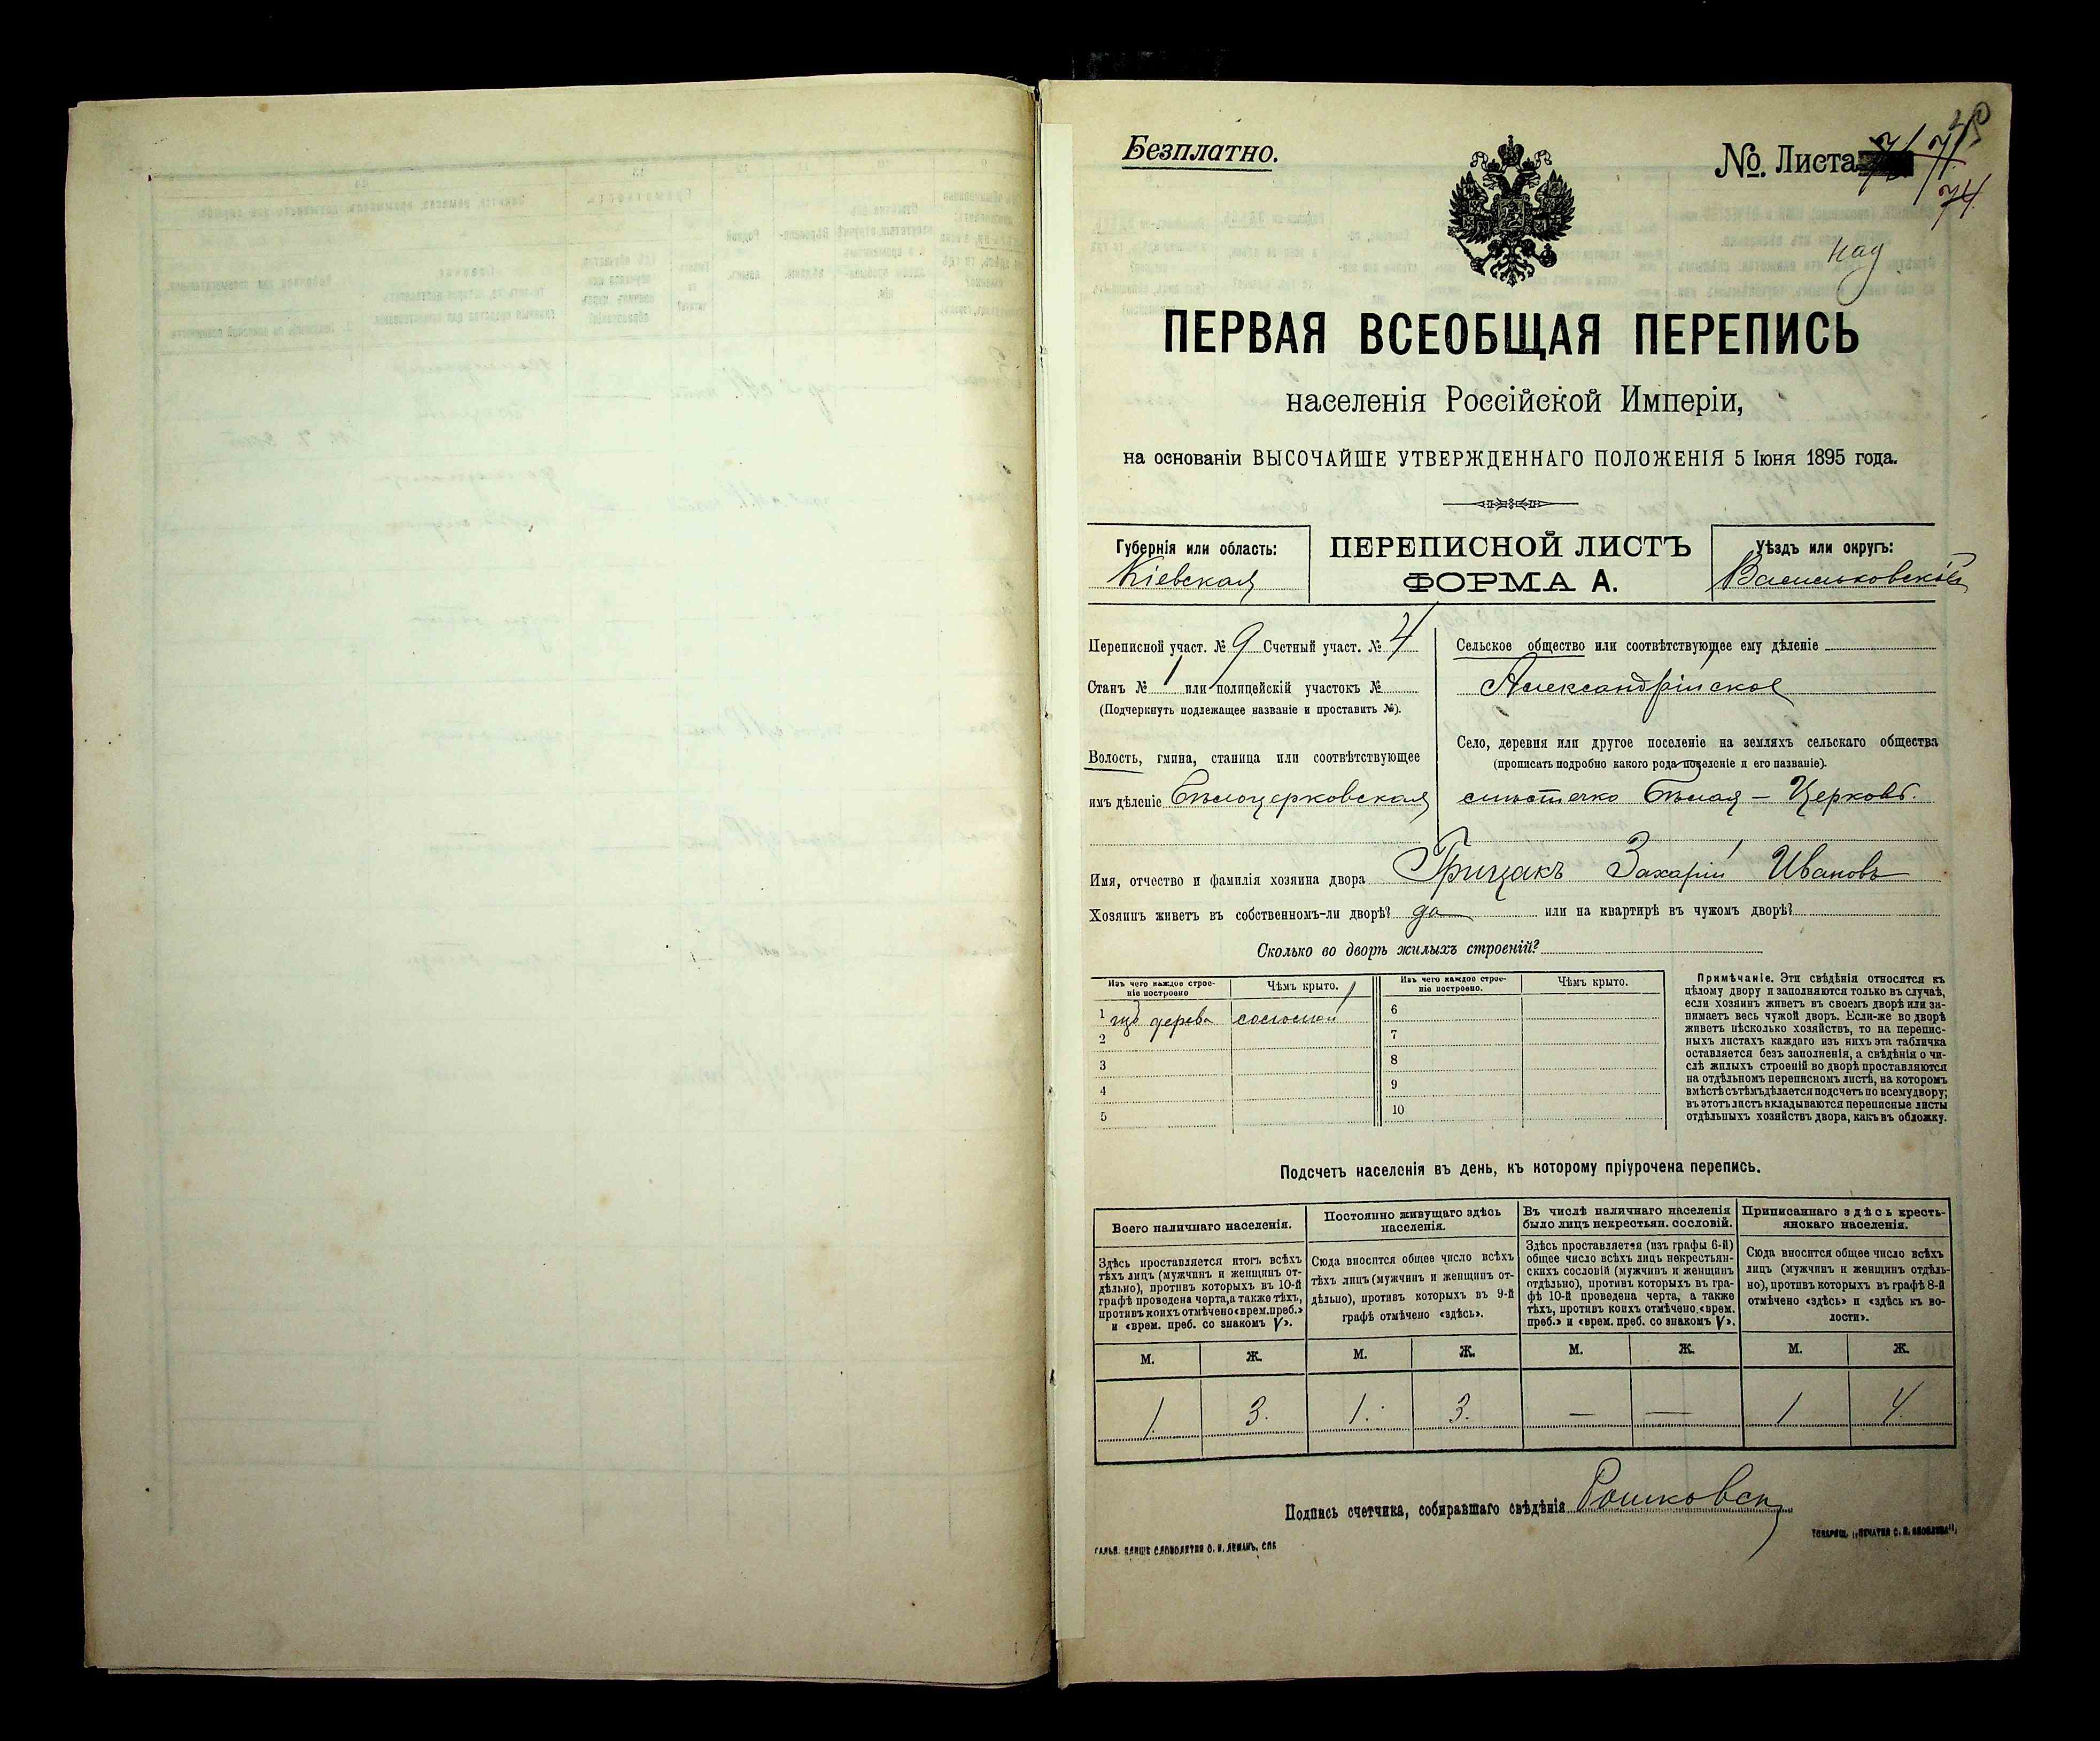 Безплатно.
№. Листа 71
74
ПЕРВАЯ ВСЕОБЩАЯ ПЕРЕПИСЬ
населенія Россійской Имперіи,
на основаніи ВЫСОЧАЙШЕ УТВЕРЖДЕННАГО ПОЛОЖЕНІЯ 5 Іюня 1895 года.
Губернія или область:
Кіевская
ПЕРЕПИСНОЙ ЛИСТЪ
ФОРМА А.
Уѣздъ или округъ:
Васильковскій
Переписной участ. № 9 Счетный участ. № 4
Станъ № 1 или полицейскій участокъ №
(Подчеркнуть подлежащее названіе и проставить №).
Волость, гмина, станица или соотвѣтствующее
имъ дѣленіе Бѣлоцерковская
Сельское общество или соотвѣтствующее ему дѣленіе
Александрійское
Село, деревня или другое поселеніе на земляхъ сельскаго общества
(прописать подробно какого рода поселеніе и его названіе).
мѣстечко Бѣлая - Церковь.
Имя, отчество и фамилія хозяина двора Грицакъ Захарій Ивановъ
Хозяинъ живетъ въ собственномъ-ли дворѣ? да или на квартирѣ въ чужомъ дворѣ?
Сколько во дворѣ жилыхъ строеній?
Изъ чего каждое строе-
ніе построено
Чѣмъ крыто.
Изъ чего каждое строе-
ніе построено.
Чѣмъ крыто.
1 изъ дерева соломой
2
3
4
5
6
7
8
9
10
Примѣчаніе. Эти свѣдѣнія относятся къ
цѣлому двору и заполняются только въ случаѣ,
если хозяинъ живетъ въ своемъ дворѣ или за-
нимаетъ весь чужой дворъ. Если-же во дворѣ
живетъ нѣсколько хозяйствъ, то на перепис-
ныхъ листахъ каждаго изъ нихъ эта табличка
оставляется безъ заполненія, а свѣдѣнія о чи-
слѣ жилыхъ строеній во дворѣ проставляются
на отдѣльномъ переписномъ листѣ, на которомъ
вмѣстѣ съ тѣмъ дѣлается подсчетъ по всему двору;
въ этотъ листъ вкладываются переписные листы
отдѣльныхъ хозяйствъ двора, какъ въ обложку.
Подсчетъ населенія въ день, къ которому пріурочена перепись.
Всего наличнаго населенія.
Здѣсь проставляется итогъ всѣхъ
тѣхъ лицъ (мужчинъ и женщинъ от-
дѣльно), противъ которыхъ въ 10-й
графѣ проведена черта, а также тѣхъ,
противъ коихъ отмѣчено «врем. преб.»
и «врем. преб. со знакомъ V».
Постоянно живущаго здѣсь
населенія.
Сюда вносится общее число всѣхъ
тѣхъ лицъ (мужчинъ и женщинъ от-
дѣльно), противъ которыхъ въ 9-й
графѣ отмѣчено «здѣсь».
Въ числѣ наличнаго населенія
было лицъ некрестьян. сословій.
Здѣсь проставляется (изъ графы 6-й)
общее число всѣхъ лицъ некрестьян-
скихъ сословій (мужчинъ и женщинъ
отдѣльно), противъ которыхъ въ гра-
фѣ 10-й проведена черта, а также
тѣхъ, противъ коихъ отмѣчено «врем.
преб.» и «врем. преб. со знакомъ V».
Приписаннаго здѣсь кресть-
янскаго населенія.
Сюда вносится общее число всѣхъ
лицъ (мужчинъ и женщинъ отдѣль-
но), противъ которыхъ въ графѣ 8-й
отмѣчено «здѣсь» и «здѣсь къ во-
лости».
М. Ж. М. Ж. М. Ж. М. Ж.
1. 3. 1. 3. — — 1 4.
Подпись счетчика, собиравшаго свѣдѣнія
ГАЛЬВ. КЛИШЕ СЛОВОЛИТНИ О. И. ЛЕМАНЪ, СПБ
ТОВАРИЩ. „ПЕЧАТНЯ С. П. ЯКОВЛЕВА“.